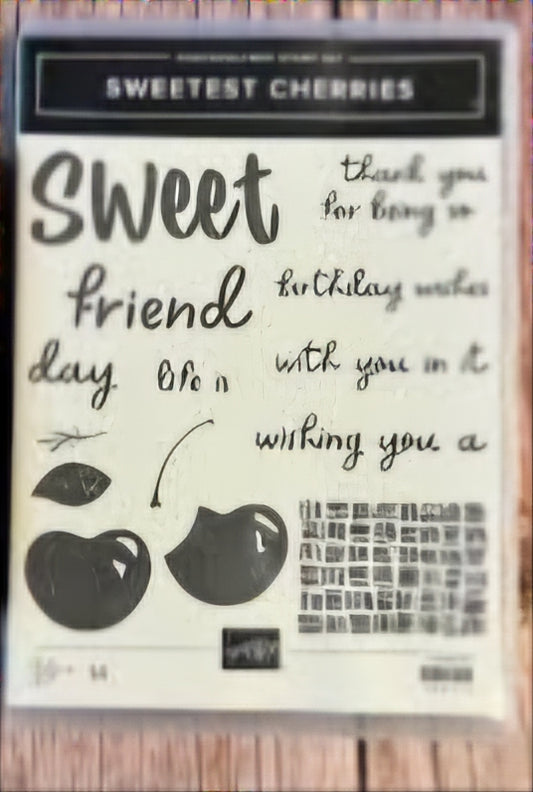 SWEETEST CHERRIES
sweet
thank you
for being so
friend
birthday wishes
day
with you in it
wishing you a